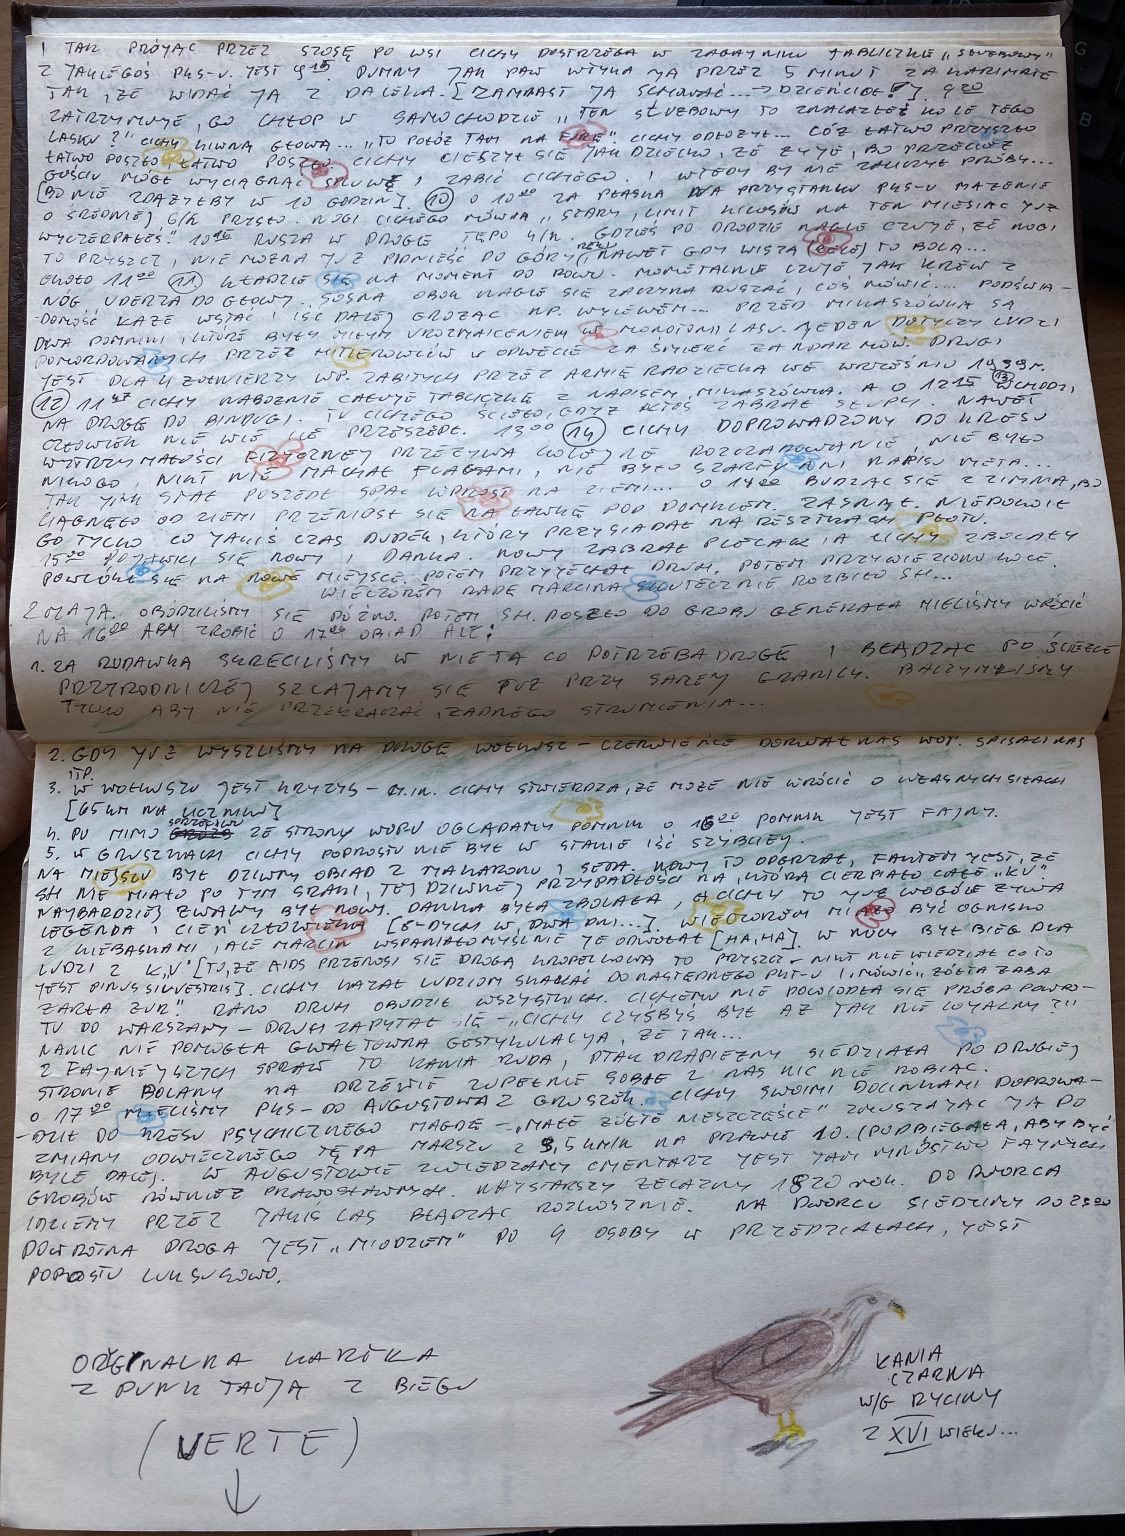 I TAK PRÓJĄC PRZEZ SZOSĘ PO WSI CICHY DOSTRZEGA W ZAGAJNIKU TABLICZKĘ „SŁUŻBOWY”
Z JAKIEGOŚ PKS-U. JEST 9 15. DUMNY JAK PAW WTYKA JĄ PRZEZ 5 MINUT ZA KARIMATĘ
TAK, ŻE WIDAĆ JĄ Z DALEKA. [ZAMIAST JĄ SCHOWAĆ... → DZIECIDE!]. 9 20
ZATRZYMUJE GO CHŁOP W SAMOCHODZIE „TEN SŁUŻBOWY TO ZNALAZŁEŚ KOŁO TEGO
LASKU?” CICHY KIWNĄŁ GŁOWĄ... „TO POŁÓŻ TAM NA” CICHY ODŁOŻYŁ... CÓŻ ŁATWO PRZYSZŁO
ŁATWO POSZŁO. ŁATWO POSZŁO CICHY CIESZYŁ SIĘ JAK DZIECKO, ŻE ŻYJE, BO PRZECIEŻ
GOŚCIU MÓGŁ WYCIĄGNĄĆ I ZABIĆ CICHEGO. I WTEDY BY NIE ZALICZYŁ PRÓBY...
[BO NIE ZDĄŻYŁBY W 10 GODZIN]. (10) O 10 00 ZA PŁASKĄ NA PRZYSTANKU PKS-U MARZENIE
O ŚREDNIEJ 6/H PRYSŁO. NOGI CICHEGO MÓWIĄ „STARY, LIMIT KILOSÓW NA TEN MIESIĄC JUŻ
WYCZERPAŁEŚ.” 10 15 RUSZA W DROGĘ TĘPO 4/H. GDZIEŚ PO DRODZE NAGLE CZUJE, ŻE NOGI
TO PRYSZCZ, NIE MOŻNA JUŻ PODNIEŚĆ DO GÓRY RĘKI, NAWET GDY WISZĄ TO BOLĄ...
OKOŁO 11 00 (11) KŁADZIE SIĘ NA MOMENT DO ROWU. MOMETALNIE CZUJE, JAK KREW Z
NÓG UDERZA DO GŁOWY. SOSNA OBOK NAGLE SIĘ ZACZYNA RUSZAĆ, COŚ MÓWIĆ.... PODŚWIA-
DOMOŚĆ KAŻE WSTAĆ I IŚĆ DALEJ GROŻĄC NP. WYLEWEM... PRZED MIKASZÓWKĄ SĄ
DWA POMNIKI, KTÓRE BYŁY MIŁYM UROZMAICENIEM W MONOTONI LASU. JEDEN DOTYCZY LUDZI
POMORDOWANYCH PRZEZ HITLEROWCÓW W ODWECIE ZA ŚMIERĆ ŻANDARMÓW. DRUGI
JEST DLA 4 ŻOŁNIERZY WP. ZABITYCH PRZEZ ARMIĘ RADZIECKĄ WE WRZEŚNIU 1939 r.
(12) 11 47 CICHY NABOŻNIE CAŁUJE TABLICZKĘ Z NAPISEM „MIKASZÓWKA. A O 12 15 (13) WCHODZI
NA DROGĘ DO BINDUGI. TU CICHEGO ŚCIĘŁO, GDYŻ KTOŚ ZABRAŁ SŁUPY. NAWET
CZŁOWIEK NIE WIE ILE PRZESZEDŁ. 13 00 (14) CICHY DOPROWADZONY DO KRESU
WYTRZYMAŁOŚCI FIZYCZNEJ PRZEŻYWA KOLEJNE ROZCZAROWANIE NIE BYŁO
NIKOGO, NIKT NIE MACHAŁ FLAGAMI, NIE BYŁO SZARF ANI NAPISU META...
TAK JAK STAŁ POSZEDŁ SPAĆ WPROST NA ZIEMI... O 14 00 BUDZĄC SIĘ Z ZIMNA, BO
CIĄGNĘŁO OD ZIEMI PRZENIÓSŁ SIĘ NA ŁAWKĘ POD DOMKIEM. ZASNĄŁ. NIEPOKOIŁ
GO TYLKO CO JAKIŚ CZAS DUDEK, KTÓRY PRZYSIADAŁ NA RESZTKACH PŁOTU.
15 00 POJAWILI SIĘ NOWY I DANKA. NOWY ZABRAŁ PLECAK, A CICHY ZBOLAŁY
POWLÓKŁ SIĘ NA NOWE MIEJSCE. POTEM PRZYJECHAŁ DRUH, POTEM PRZYWIEZIONO KOCE.
WIECZOREM RADĘ MARCINA SKUTECZNIE ROZBIŁO SH...
2 MAJA. OBUDZILIŚMY SIĘ PÓŹNO. POTEM SH. POSZŁO DO GROBU GENERAŁA MIELIŚMY WRÓCIĆ
NA 16 00 ABY ZROBIĆ O 17 00 OBIAD ALE:
1. ZA RUDAWKĄ SKRĘCILIŚMY W NIE TĄ CO POTRZEBA DROGĘ I BŁĄDZĄC PO ŚCIEŻCE
PRZYRODNICZEJ SZLAJAMY SIĘ TUŻ PRZY SAMEJ GRANICY. BACZYMYLIŚMY
TYLKO ABY NIE PRZEKRACZAĆ ŻADNEGO STRUMIENIA...
2. GDY JUŻ WYSZLIŚMY NA DROGĘ WOŁKUSZ – CZERWIEŃCE DORWAŁ NAS WOP. SPISALI NAS
ITP.
3. W WOŁKUSZU JEST KRYZYS – M.IN. CICHY STWIERDZA, ŻE MOŻE NIE WRÓCIĆ O WŁASNYCH SIŁACH
[65 KM NA LICZNIKU]
4. PO MIMO SPRZECIWU ZE STRONY WOPU OGLĄDAMY POMNIK O 16 00 POMNIK JEST FAJNY.
5. W GRUSZKACH CICHY POPROSTU NIE BYŁ W STANIE IŚĆ SZYBCIEJ.
NA MIEJSCU BYŁ DZIWNY OBIAD Z MAKARONU I SERA. NOWY TO ODGRZAŁ, FAKTEM JEST, ŻE
SH NIE MIAŁO PO TYM SRAKI, TEJ DZIWNEJ PRZYPADŁOŚCI NA, KTÓRĄ CIERPIAŁO CAŁE „KV”
NAJBARDZIEJ ŻWAWY BYŁ NOWY. DANKA BYŁA ZBOLAŁA, A CICHY TO JUŻ WOGÓLE ŻYWA
LEGENDA I CIEŃ CZŁOWIEKA [8-DYCH W DWA DNI...]. WIECZOREM MIAŁO BYĆ OGNISKO
Z KIEŁBASKAMI, ALE MARCIN WSPANIAŁOMYŚLNIE JE ODWOŁAŁ [HA, HA]. W NOCY BYŁ BIEG DLA
LUDZI Z „K,V” [TO, ŻE AIDS PRZENOSI SIĘ DROGĄ KROPELKOWĄ TO PRYSZCZ – NIKT NIE WIEDZIAŁ CO TO
JEST PINUS SILVESTRIS]. CICHY KAZAŁ LUDZIOM SKAKAĆ DO NASTĘPNEGO PKT-U I MÓWIĆ „ŻÓŁTA ŻABA
ŻARŁA ŻUR”. RANO DRUH OBUDZIŁ WSZYSTKICH. CICHEMU NIE POWIODŁA SIĘ PRÓBA POWRO-
TU DO WARSZAWY – DRUH ZAPYTAŁ SIĘ – „CICHY CZYŻBYŚ BYŁ AŻ TAK NIE LOJALNY?”
NA NIC NIE POMOGŁA GWAŁTOWNA GESTYKULACJA, ŻE TAK...
Z FAJNIEJSZYCH SPRAW TO KANIA RUDA, PTAK DRAPIEŻNY SIEDZIAŁA PO DRUGIEJ
STRONIE POLANY NA DRZEWIE ZUPEŁNIE SOBIE Z NAS NIC NIE ROBIĄC.
O 17 00 MIELIŚMY PKS – DO AUGUSTOWA Z GRUSZEK. CICHY SWOIMI DOCINKAMI DOPROWA-
-DZIŁ DO KRESU PSYCHICZNEGO MAGDĘ – „MAŁE ŻÓŁTE NIESZCZĘŚCIE” ZMUSZAJĄC JĄ DO
ZMIANY ODWIECZNEGO TĘPA MARSZU Z 3,5 KM/H NA PRAWIE 10. (PODBIEGAŁA, ABY BYĆ
BYLE DALEJ. W AUGUSTOWIE ZWIEDZAMY CMENTARZ JEST TAM MNÓSTWO FAJNYCH
GROBÓW RÓWNIEŻ PRAWOSŁAWNYCH. NAJSTARSZY ŻELAZNY 1820 rok. DO DWORCA
IDZIEMY PRZEZ JAKIŚ LAS BŁĄDZĄC ROZKOSZNIE. NA DWORCU SIEDZIMY DO 23 00
POWROTNA DROGA JEST „MIODZEM” PO 4 OSOBY W PRZEDZIAŁACH, JEST
POPROSTU LUKSUSOWO.
ORGINALNA KARTKA
Z PUNKTACJĄ Z BIEGU
(VERTE)
KANIA
CZARNA
W/G RYCINY
Z XVI WIEKU...